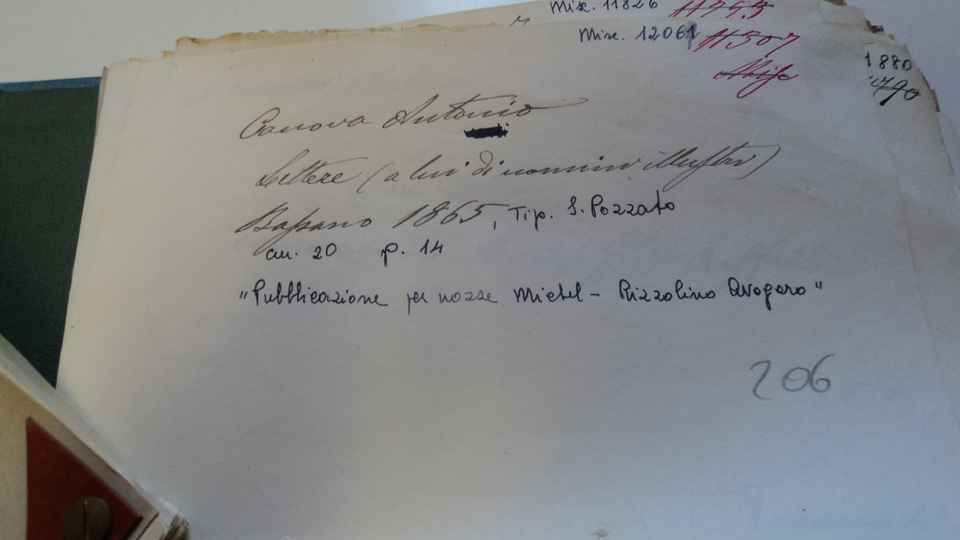 Misc. 11826
Misc. 12061 11507
1880
Canova Antonio
Lettere (a lui di uomini illustri)
Bassano 1865, Tip. S. Pozzato
cm. 20 p. 14
"Pubblicazione per nozze Michel - Rizzolino Avogaro"
206